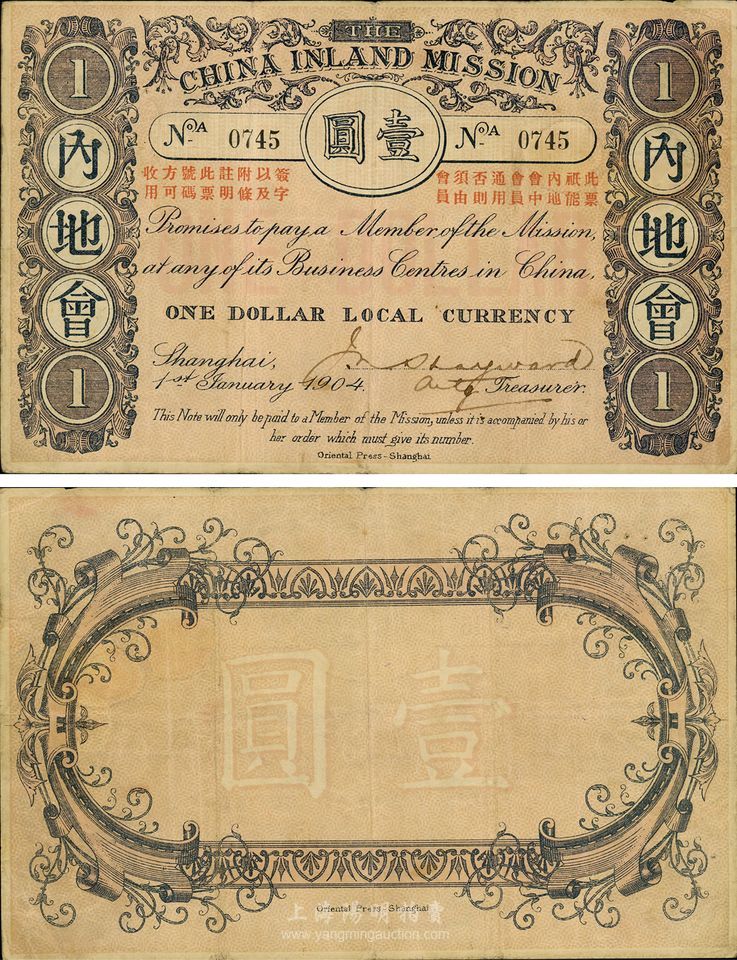 THE
CHINA INLAND MISSION
1
內地會
1
1
內地會
1
Nº A 0745
壹圓
Nº A 0745
此票祇能內地會中會員通用否則須由會員
簽字以及附條註明此票號碼方可收用
Promises to pay a Member of the Mission,
at any of its Business Centres in China,
ONE DOLLAR LOCAL CURRENCY
Shanghai,
1st January 1904
Actg Treasurer.
This Note will only be paid to a Member of the Mission, unless it is accompanied by his or
her order which must give its number.
Oriental Press - Shanghai
壹圓
Oriental Press - Shanghai
www.yangmingauction.com